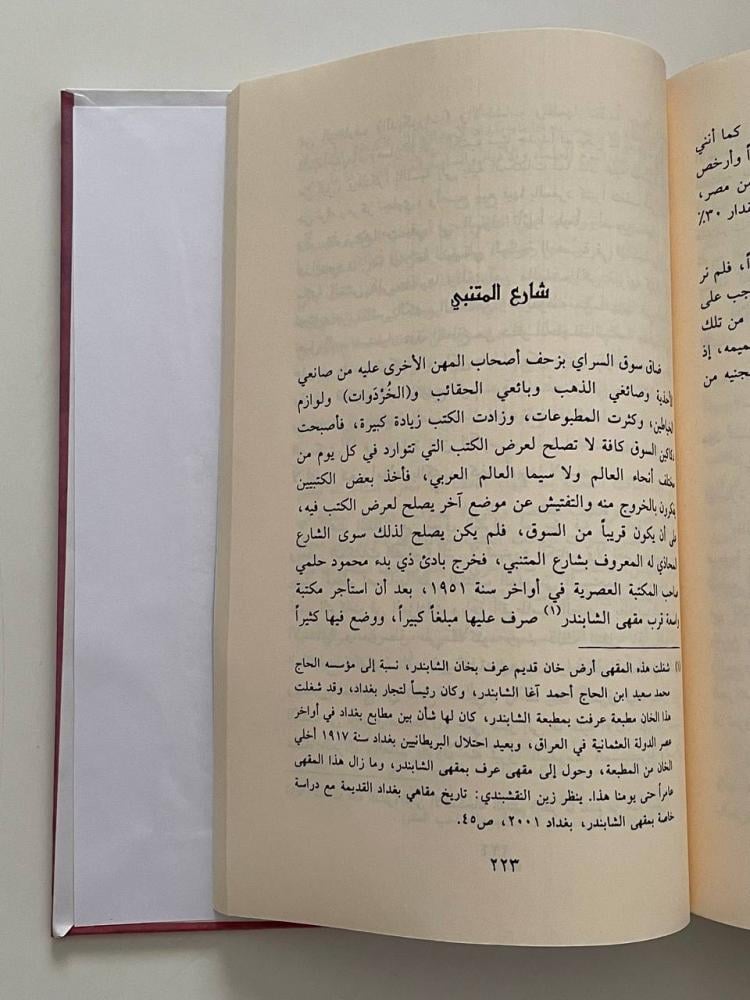 شارع المتنبي
ضاق سوق السراي بزحف أصحاب المهن الأخرى عليه من صانعي
الأحذية وصائغي الذهب وبائعي الحقائب و(الخُرْدَوات) ولوازم
الخياطين، وكثرت المطبوعات، وزادت الكتب زيادة كبيرة، فأصبحت
دكاكين السوق كافة لا تصلح لعرض الكتب التي تتوارد في كل يوم من
مختلف أنحاء العالم ولا سيما العالم العربي، فأخذ بعض الكتبيين
يفكرون بالخروج منه والتفتيش عن موضع آخر يصلح لعرض الكتب فيه،
على أن يكون قريباً من السوق، فلم يكن يصلح لذلك سوى الشارع
المحاذي له المعروف بشارع المتنبي، فخرج بادئ ذي بدء محمود حلمي
صاحب المكتبة العصرية في أواخر سنة ١٩٥١، بعد أن استأجر مكتبة
واسعة قرب مقهى الشابندر(١) صرف عليها مبلغاً كبيراً، ووضع فيها كثيراً
(١) شغلت هذه المقهى أرض خان قديم عرف بخان الشابندر، نسبة إلى مؤسسه الحاج
محمد سعيد ابن الحاج أحمد آغا الشابندر، وكان رئيساً لتجار بغداد، وقد شغلت
هذا الخان مطبعة عرفت بمطبعة الشابندر، كان لها شأن بين مطابع بغداد في أواخر
عصر الدولة العثمانية في العراق، وبعيد احتلال البريطانيين بغداد سنة ١٩١٧ أخلي
الخان من المطبعة، وحول إلى مقهى عرف بمقهى الشابندر، وما زال هذا المقهى
عامراً حتى يومنا هذا. ينظر زين النقشبندي: تاريخ مقاهي بغداد القديمة مع دراسة
خاصة بمقهى الشابندر، بغداد ٢٠٠١، ص٤٥.
٢٢٣
كما أنني
وأرخص
من مصر،
٣٠٪
فلم نر
على
من تلك
إذ
من